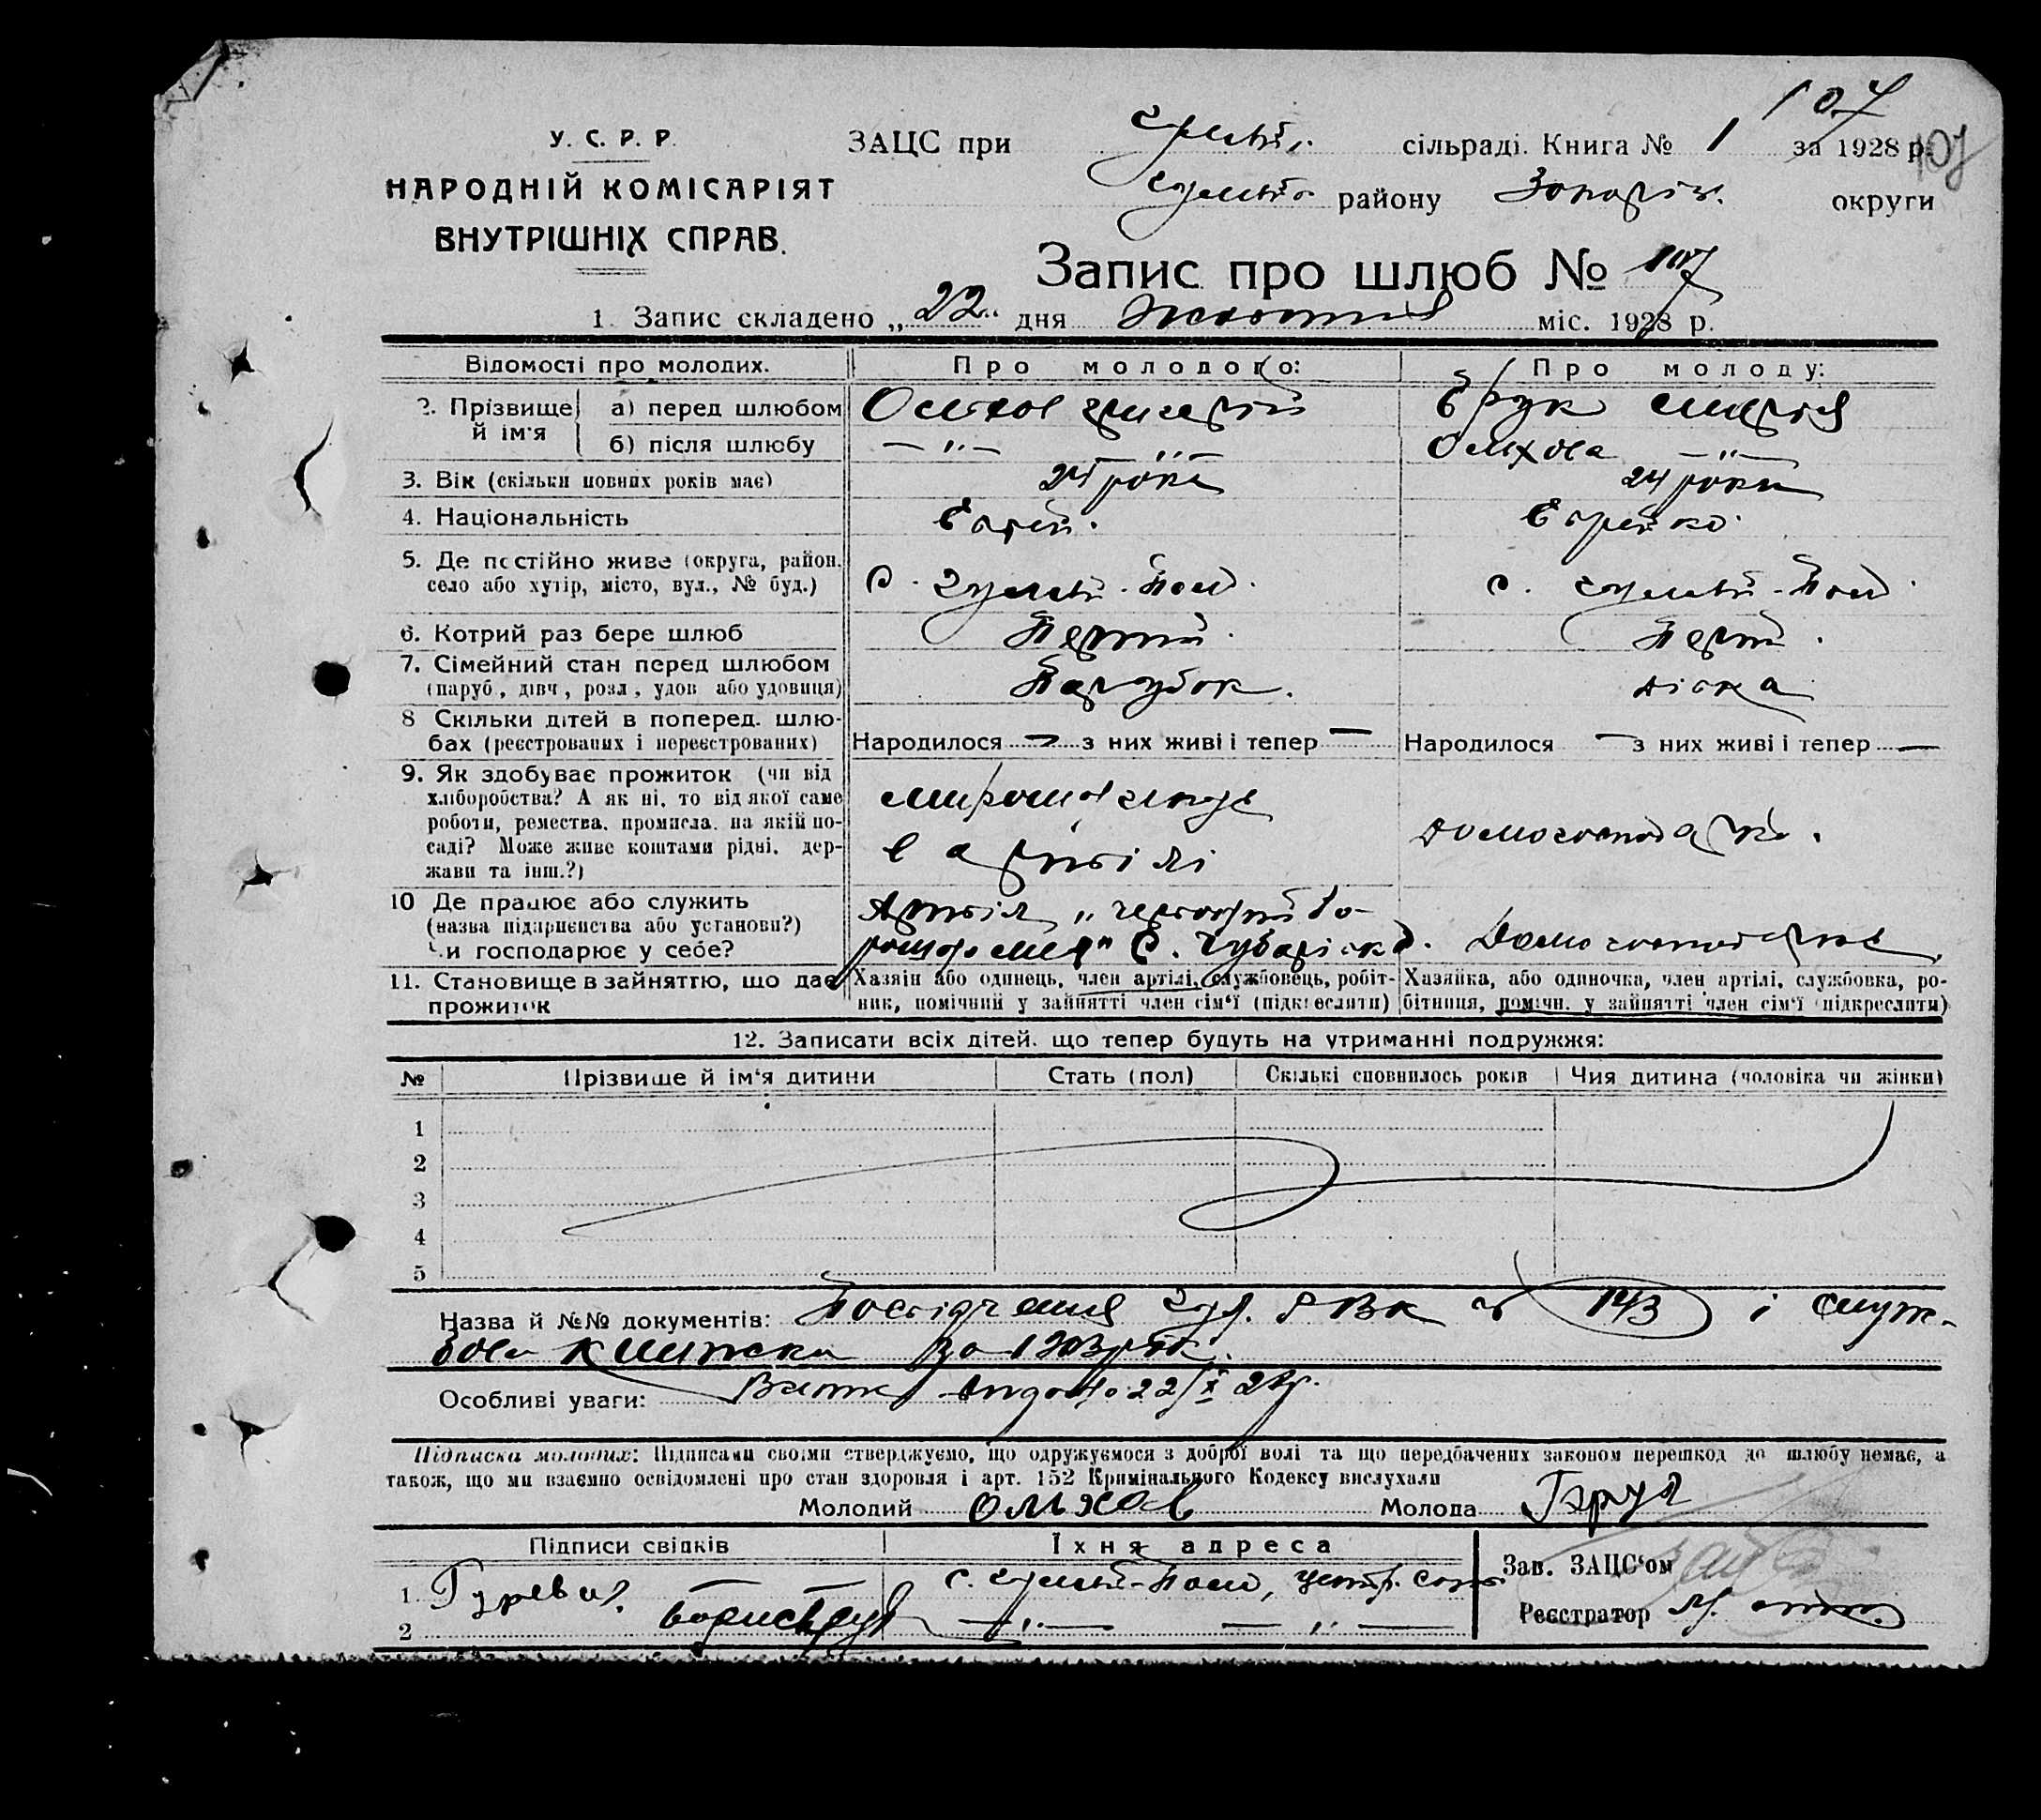 107
У. С. Р. Р.
НАРОДНІЙ КОМІСАРІЯТ
ВНУТРІШНІХ СПРАВ.
ЗАЦС при сільраді. Книга № 1 за 1928 р. 107
району Запоріж. округи
Запис про шлюб № 107
1. Запис складено „22" дня жовтня міс. 1928 р.
Відомості про молодих. Про молодого: Про молоду:
2. Прізвище й ім'я а) перед шлюбом Ольхов Григорій Брук Марія
б) після шлюбу — „ — — „ — Ольхова — „ —
3. Вік (скільки повних років має) 24 роки 24 роки
4. Національність Еврей. Еврейка
5. Де постійно живе (округа, район,
село або хутір, місто, вул., № буд.) с. Гуляй-Поле. с. Гуляй-Поле.
6. Котрий раз бере шлюб Перший. Перший.
7. Сімейний стан перед шлюбом
(паруб., дівч., розл., удов. або удовиця) Парубок. Дівка
8 Скільки дітей в поперед. шлю-
бах (реєстрованих і нереєстрованих) Народилося — з них живі і тепер — Народилося — з них живі і тепер —
9. Як здобуває прожиток (чи від
хліборобства? А як ні, то від якої саме
роботи, ремества, промисла, на якій по-
саді? Може живе коштами рідні, дер-
жави та інш.?)
в артілі
Домогосподарка.
10 Де працює або служить
(назва підприємства або установи?)
Чи господарює у себе?
Артіль „Червоний бо-
рошномел" С.
Домогосподарка
11. Становище в зайняттю, що дає
прожиток
Хазяін або одинець, член артілі, службовець, робіт-
ник, помічний у зайнятті член сім'ї (підкреслити)
Хазяйка, або одиночка, член артілі, службовка, ро-
бітниця, помічн. у зайнятті член сім'ї (підкреслити)
12. Записати всіх дітей, що тепер будуть на утриманні подружжя:
№ Прізвище й ім'я дитини Стать (пол) Скількі сповнилось років Чия дитина (чоловіка чи жінки)
1
2
3
4
5
Назва й №№ документів: Посвідчення Гул. РВК № 143 і служ-
бова книжка за 1903 рік.
Особливі уваги: 22/X 28р.
Підписка молодих: Підписами своїми стверджуємо, що одружуємося з доброї волі та що передбачених законом перешкод до шлюбу немає, а
також, що ми взаємно освідомлені про стан здоровля і арт. 152 Кримінального Кодексу вислухали
Молодий Ольхов Молода Брук
Підписи свідків Їхня адреса
1. Гуревич. с. Гуляй-Поле, центр.
2 Борис Брук — „ — — „ —
Зав. ЗАЦС'ом
Реєстратор